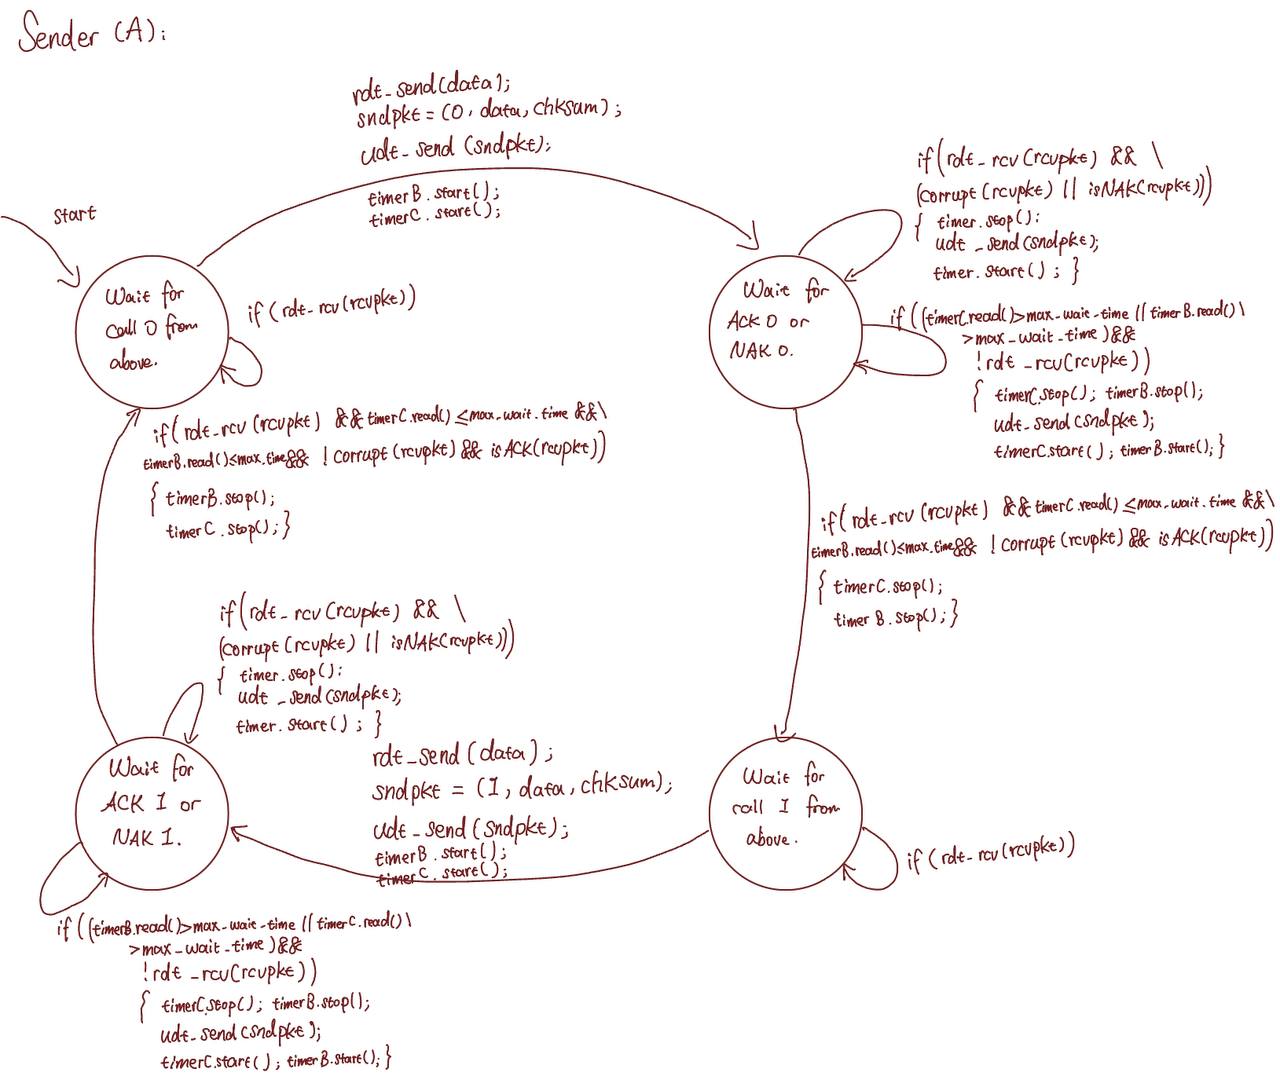 Sender (A):
rdt_send(data);
sndpkt = (0, data, chksum);
udt_send (sndpkt);
timerB.start();
timerC.start();
start
Wait for
call 0 from
above.
if (rdt-rcv(rcvpkt))
Wait for
ACK 0 or
NAK 0.
if(rdt_rcv(rcvpkt) && \
(corrupt(rcvpkt) || isNAK(rcvpkt)))
{ timer.stop();
udt_send(sndpkt);
timer.start(); }
if ((timerC.read()>max-wait-time || timerB.read() \
>max_wait_time )&&
!rdt_rcv(rcvpkt))
{ timerC.stop(); timerB.stop();
udt_send(sndpkt);
timerC.start(); timerB.start(); }
if(rdt_rcv(rcvpkt) && timerC.read() ≤max_wait.time &&\
timerB.read()≤max.time&& !corrupt(rcvpkt) && isACK(rcvpkt))
{ timerB.stop();
timerC.stop();}
if(rdt_rcv(rcvpkt) && timerC.read() ≤max_wait.time &&\
timerB.read()≤max.time&& !corrupt(rcvpkt) && isACK(rcvpkt))
{ timerC.stop();
timerB.stop();}
if(rdt_rcv(rcvpkt) && \
(corrupt(rcvpkt) || isNAK(rcvpkt)))
{ timer.stop();
udt_send(sndpkt);
timer.start(); }
Wait for
ACK 1 or
NAK 1.
rdt_send(data);
sndpkt = (1, data, chksum);
udt_send(sndpkt);
timerB.start();
timerC.start();
Wait for
call 1 from
above.
if (rdt-rcv(rcvpkt))
if ((timerB.read()>max-wait-time || timerC.read() \
>max_wait_time )&&
!rdt_rcv(rcvpkt))
{ timerC.stop(); timerB.stop();
udt_send(sndpkt);
timerC.start(); timerB.start(); }